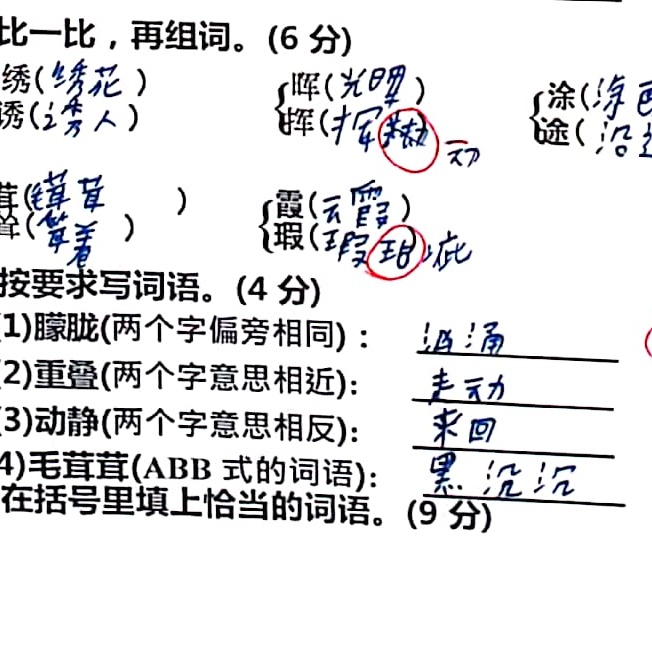 比一比，再组词。(6 分)
绣(绣花) 晖(光晖) 涂(涂画
诱(诱人) 挥(挥动 涂(沿途
茸(茸茸)
耸( ) 霞(云霞)
瑕(瑕疵
按要求写词语。(4 分)
(1)朦胧(两个字偏旁相同)：汹涌
(2)重叠(两个字意思相近)：走动
(3)动静(两个字意思相反)：来回
4)毛茸茸(ABB 式的词语)：黑沉沉
在括号里填上恰当的词语。(9 分)